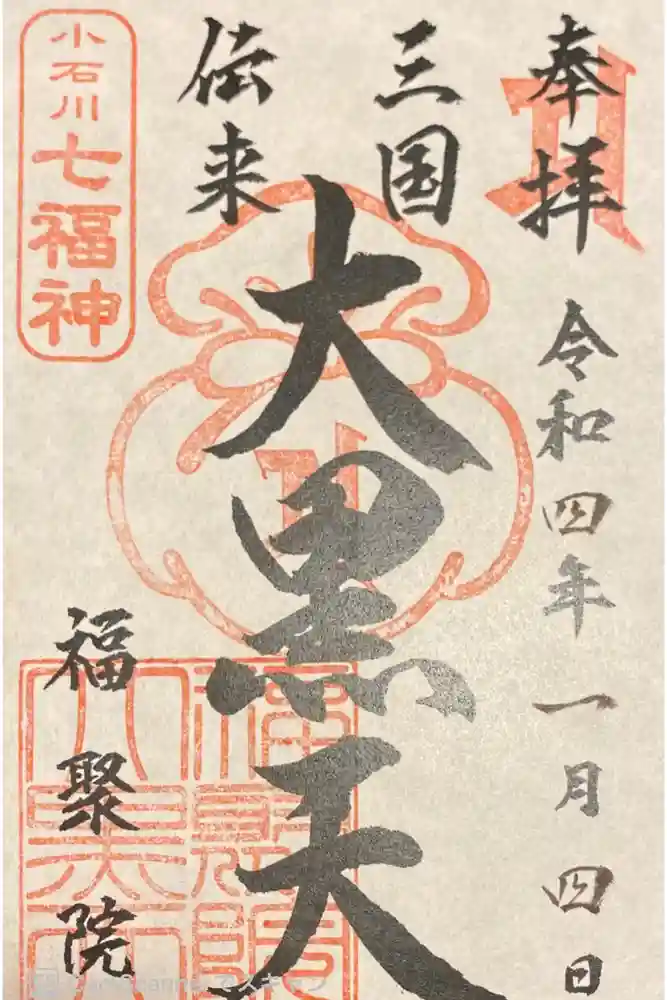 奉拝
令和四年一月四日
三国
伝来
大黒天
小石川
七福神
福聚院
でスキャン